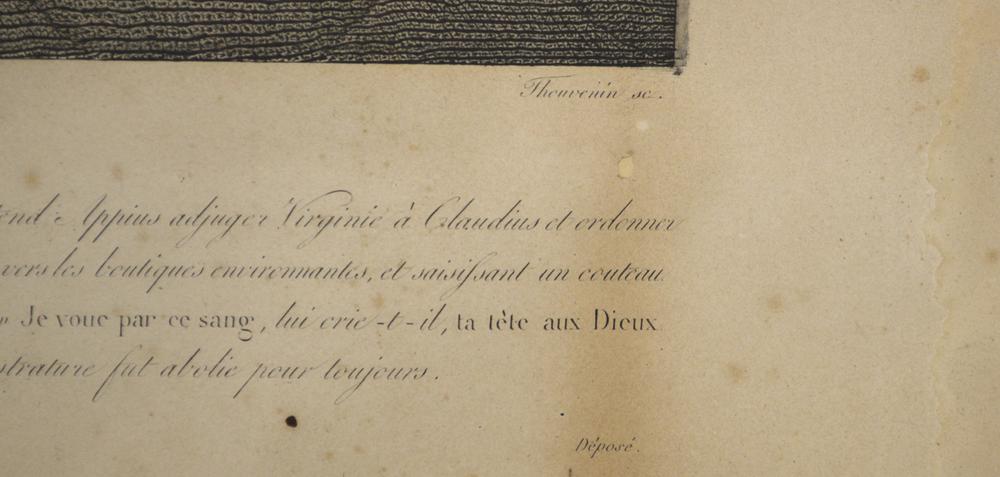 Thouvenin sc.
Appius adjuger Virginie à Claudius et ordonner
vers les boutiques environnantes, et saisiſsant un couteau
Je voue par ce sang, lui crie-t-il, ta tête aux Dieux
strature fut abolie pour toujours.
Déposé.